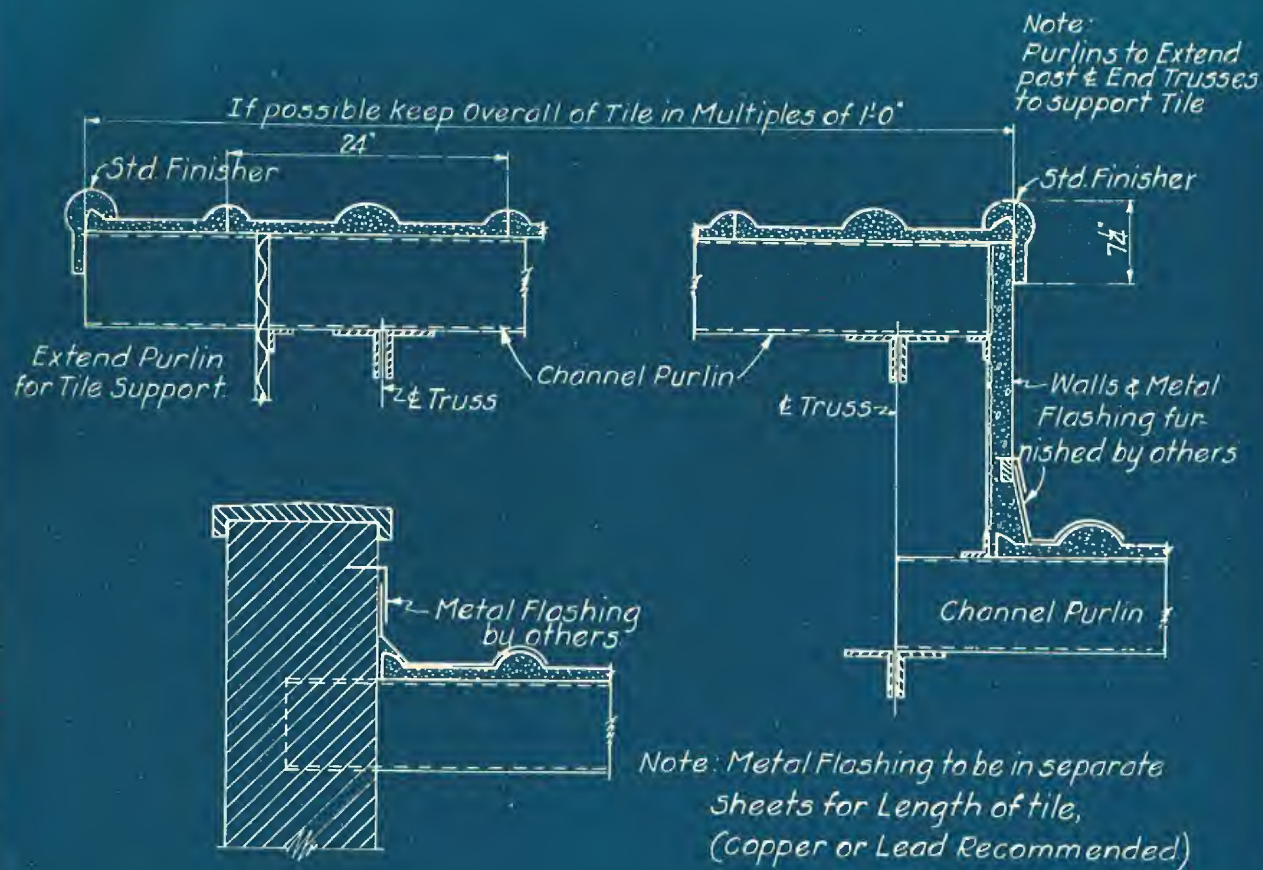 Note:
Purlins to Extend
past ℄ End Trusses
to support Tile
If possible Keep Overall of Tile in Multiples of 1'0"
24"
Std. Finisher
Std. Finisher
7¼"
Extend Purlin
for Tile Support.
Channel Purlin
℄ Truss
℄ Truss
Walls & Metal
Flashing fur-
nished by others
Metal Flashing
by others
Channel Purlin
Note: Metal Flashing to be in separate
sheets for Length of tile,
(Copper or Lead Recommended)